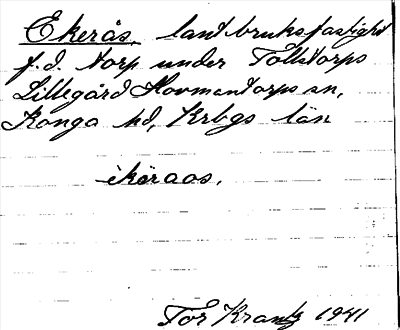 Ekerås, lantbruksfastighet
f.d. torp under Tollstorps
Lillegård Hovmantorps sn,
Konga hd, Krbgs län
ekäraos.
Tor Krantz 1941